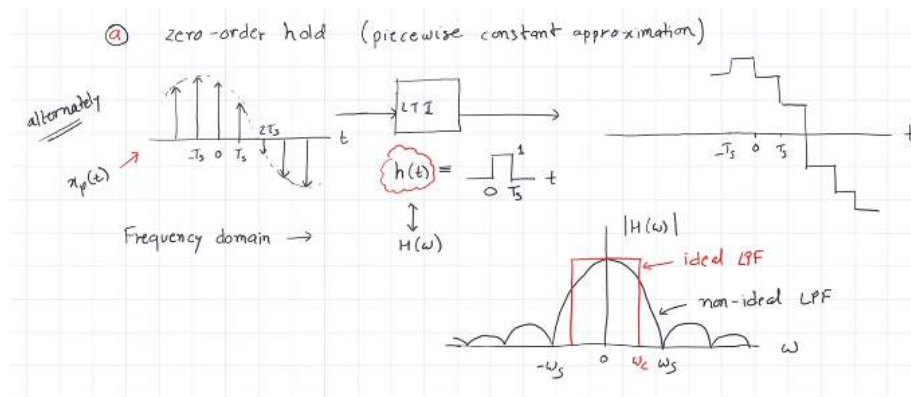 ⓐ zero-order hold (piecewise constant approximation)
alternately
xₚ(t)
-Tₛ 0 Tₛ 2Tₛ t
LTI
h(t) = 1
0 Tₛ t
↕
H(ω)
-Tₛ 0 Tₛ t
Frequency domain →
|H(ω)|
ideal LPF
non-ideal LPF
-ωₛ 0 ω_c ωₛ ω